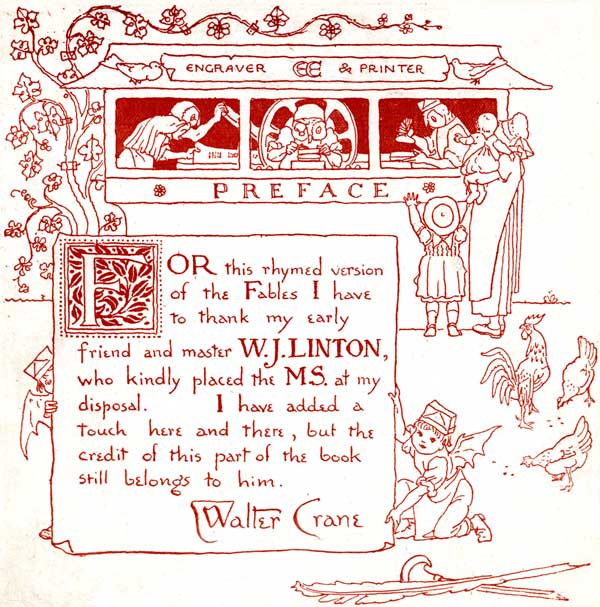 ENGRAVER EE & PRINTER
PREFACE
FOR this rhymed version
of the Fables I have
to thank my early
friend and master W.J.LINTON,
who kindly placed the MS. at my
disposal. I have added a
touch here and there, but the
credit of this part of the book
still belongs to him.
Walter Crane